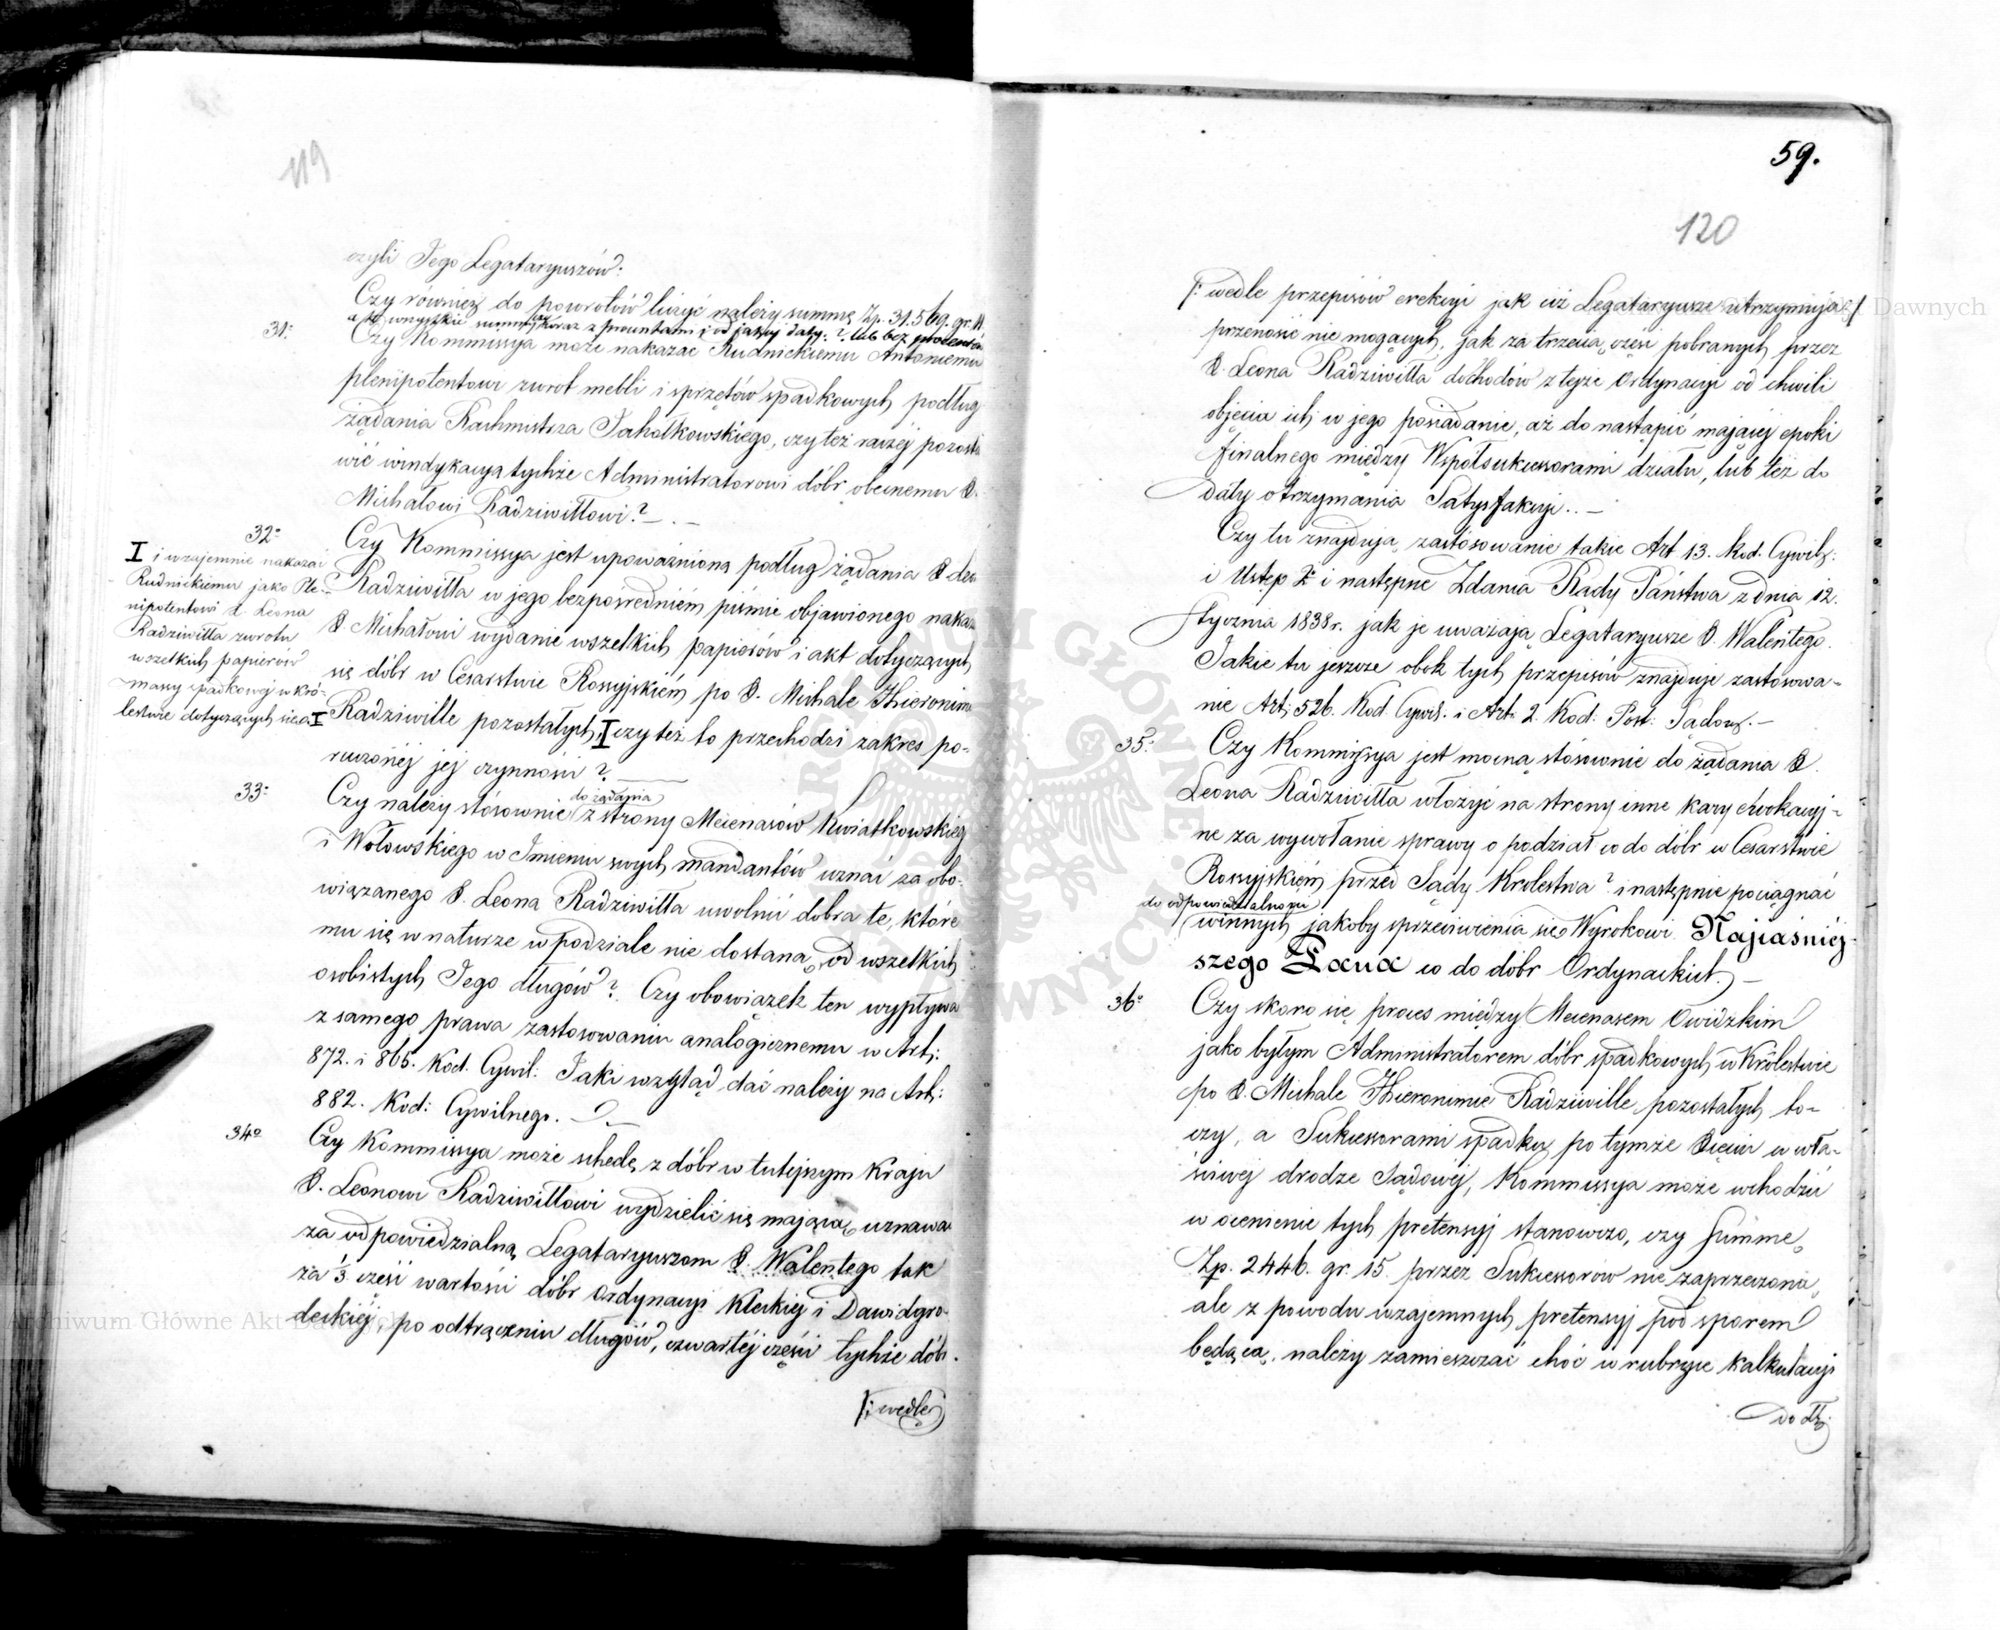 119
czyli Jego Legataryuszów:
Czy również do powrotów liczyć należy summę Zp. 31.569. gr. 11.
a to wszystkie summy oraz z procentami i od jakiej daty: ? lub bez procentu
31:
Czy Kommissya może nakazać Rudnickiemu Antoniemu
plenipotentowi zwrot mebli i sprzętów spadkowych podług
żądania Rachmistrza Jachołkowskiego, czy też raczej pozosta
wić windykacyą tychże Administratorowi dóbr obecnemu X.
Michałowi Radziwiłłowi? —
32o
Czy Kommissya jest upoważnioną podług żądania X Leo
Radziwiłła w jego bezpośredniém piśmie objawionego nakaz
X Michałowi wydanie wszelkich papierów i akt dotyczących
się dóbr w Cesarstwie Rossyjskiém po X. Michale Hieronimie
Radziwille pozostałych, I czy też to przechodzi zakres po-
ruczonéj jej czynności ? —
I i wzajemnie nakazać
Rudnickiemu jako Ple-
nipotentowi X. Leona
Radziwiłła zwrotu
wszelkich papierów
massy spadkowej w Kró-
lestwie dotyczących się a I
33o
Czy należy stósownie do żądania z strony Mecenasów Kwiatkowskieg
i Wołowskiego w Imieniu swych mandantów uznać za obo-
wiązanego X. Leona Radziwiłła uwolnić dobra te, które
mu się w naturze w podziale nie dostaną, od wszelkich
osobistych Jego długów? Czy obowiązek ten wypływa
z samego prawa zastosowaniu analogicznemu w Art:
872. i 865. Kod. Cywil: Jaki wzgląd dać należy na Art:
882. Kod: Cywilnego. —
34o
Czy Kommissya może schedę z dóbr w tutejszym Kraju
X. Leonowi Radziwiłłowi wydzielić się mającą, uznawać
za odpowiedzialną Legataryuszom X. Walentego tak
za 1/3 cześć wartości dóbr Ordynacyi Kleckiej i Dawidgro-
deckiéj, po odtrąceniu długów, czwartéj części tychże dóbr.
/: wedle
59.
120
/: wedle przepisów erekcyi jak ciż Legataryusze utrzymują :/
przenosić nie mogących, jak za trzecią część pobranych przez
X. Leona Radziwiłła dochodów z tejże Ordynacyi od chwili
objęcia ich w jego posiadanie, aż do nastąpić mającéj epoki
finalnego między Współsukcessorami działu, lub też do
daty otrzymania Satysfakcyi. . —
Czy tu znajdują zastósowanie takie Art 13. Kod. Cywil:
i Ustęp 2. i następne Zdania Rady Państwa z dnia 12.
Stycznia 1838 r. jak je uważają Legataryusze X. Walentego.
Jakie tu jeszcze obok tych przepisów znajduje zastosowa-
nie Art: 526. Kod Cywil. i Art. 2. Kod: Post: Sądow. —
35o
Czy Kommissya jest mocną stósownie do żądania X.
Leona Radziwiłła włożyć na strony inne kary ewokacyj-
ne za wywołanie sprawy o podział co do dóbr w Cesarstwie
Rossyjskiém przed Sądy Królestwa ? i następnie pociągnąć
do odpowiedzialności
winnych jakoby sprzeciwienia się Wyrokowi Najjaśniéj-
szego Pana co do dóbr Ordynackich. —
36o
Czy skoro się proces między Mecenasem Owidzkim
jako byłym Administratorem dóbr spadkowych w Królestwie
po X. Michale Hieronimie Radziwille pozostałych to-
czy, a Sukcessorami spadku po tymże Xięciu w wła-
ściwej drodze Sądowéj, Kommissya może wchodzić
w ocenienie tych pretensyj stanowczo, czy Summę
Zp. 2446. gr. 15. przez Sukcessorów nie zaprzeczoną,
ale z powodu wzajemnych pretensyj pod sporem
będącą, należy zamieszczać choć w rubryce Kalkulacyi
do dł: